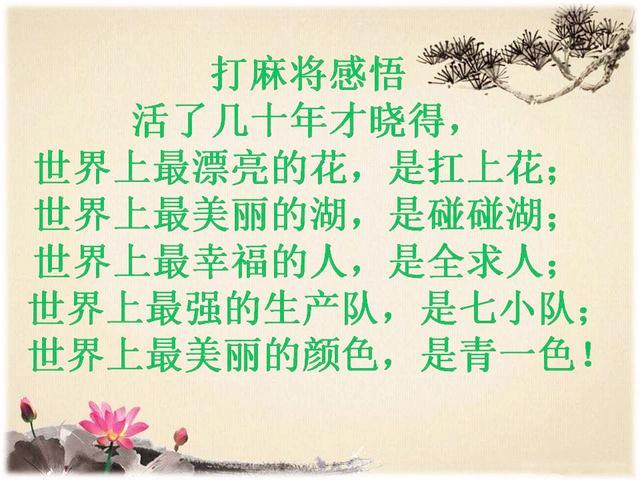 打麻将感悟
活了几十年才晓得，
世界上最漂亮的花，是扛上花；
世界上最美丽的湖，是碰碰湖；
世界上最幸福的人，是全求人；
世界上最强的生产队，是七小队；
世界上最美丽的颜色，是青一色！